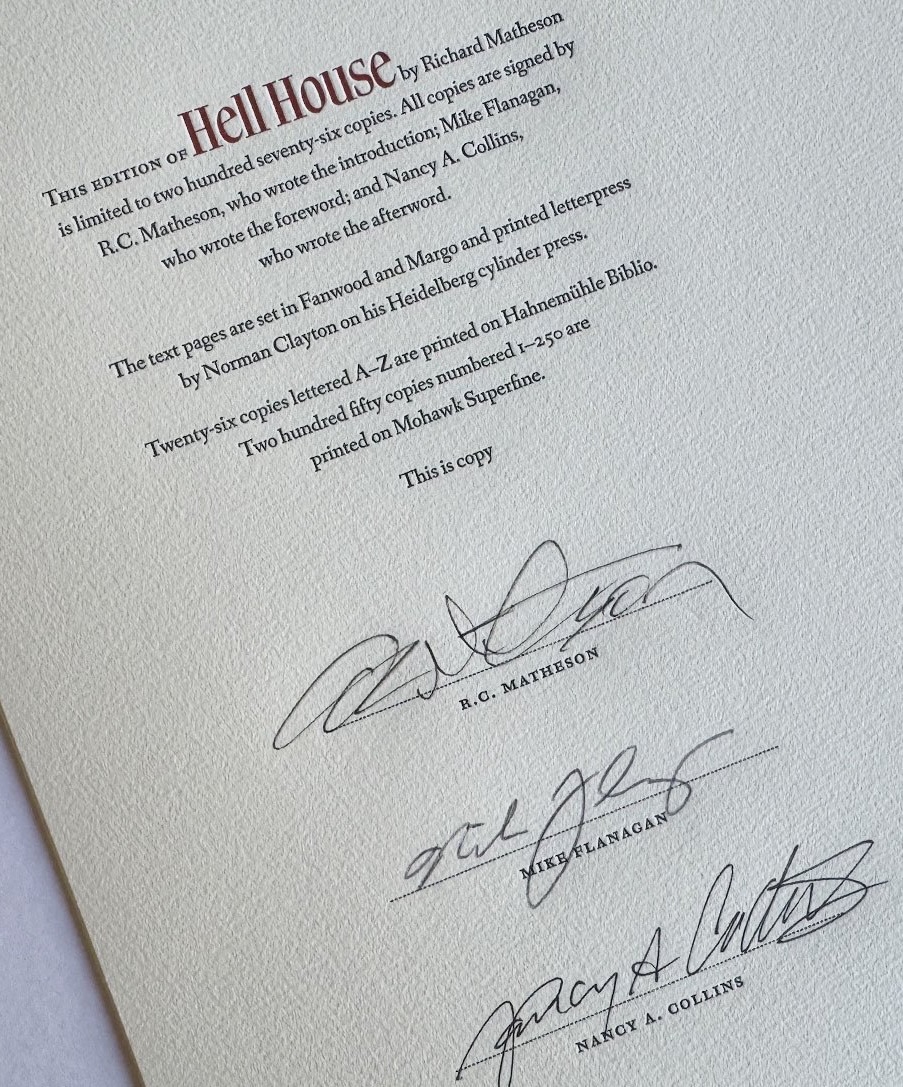 THIS EDITION OF Hell House by Richard Matheson
is limited to two hundred seventy-six copies. All copies are signed by
R.C. Matheson, who wrote the introduction; Mike Flanagan,
who wrote the foreword; and Nancy A. Collins,
who wrote the afterword.
The text pages are set in Fanwood and Margo and printed letterpress
by Norman Clayton on his Heidelberg cylinder press.
Twenty-six copies lettered A–Z are printed on Hahnemühle Biblio.
Two hundred fifty copies numbered 1–250 are
printed on Mohawk Superfine.
This is copy
R.C. MATHESON
MIKE FLANAGAN
Nancy A Collins
NANCY A. COLLINS